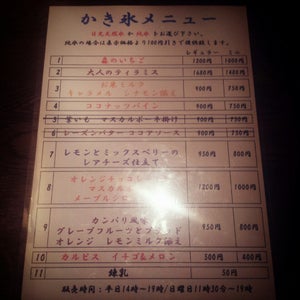 かき氷メニュー
日光天然水 か 純氷 をお選び下さい。
純氷の場合は表示価格より100円引きで提供致します。
レギュラー ミニ
1 森のいちご 1200円 1000円
2 大人のティラミス 1680円 1400円
3 お米ミルク キャラメル シナモン添え 900円 750円
4 ココナッツパイン 900円 750円
5 紫いも マスカルポーネ掛け
6 レーズンバター ココアソース
7 レモンとミックスベリーの レアチーズ仕立て 950円 800円
8 オレンジチョコレート マスカル メープル 1200円 1000円
9 カンパリ風味 グレープフルーツとブラッド オレンジ レモンミルク添え 950円 800円
10 カルピス イチゴ&メロン 500円 400円
11 練乳 50円
販売時間：平日14時～19時/日曜日11時30分～19時